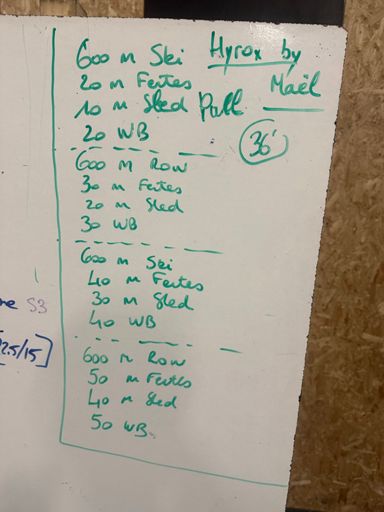 Hyrox by
Maël
36'
600 m Ski
20 m Fentes
10 m Sled Pull
20 WB
600 m Row
30 m Fentes
20 m Sled
30 WB
600 m Ski
40 m Fentes
30 m Sled
40 WB
600 m Row
50 m Fentes
40 m Sled
50 WB
S3
2.5/15]